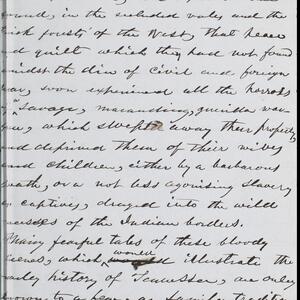 found, in the secluded vales and the
thick forests of the West, that peace
and quiet which they had not found
amidst the dire of civil and foreign
war, soon experienced all the horrors
of savage, marauding, guerilla war-
fare, which swept away their property
and deprived them of their wives
and children, either by a barbarous
death, or a not less agonising slavery
as captives, draged into the wild
recesses of the Indian borders.
Many fearful tales of these bloody
scenes, which would illustrate the
early history of Tennessee, are only
known to a few, as family traditi